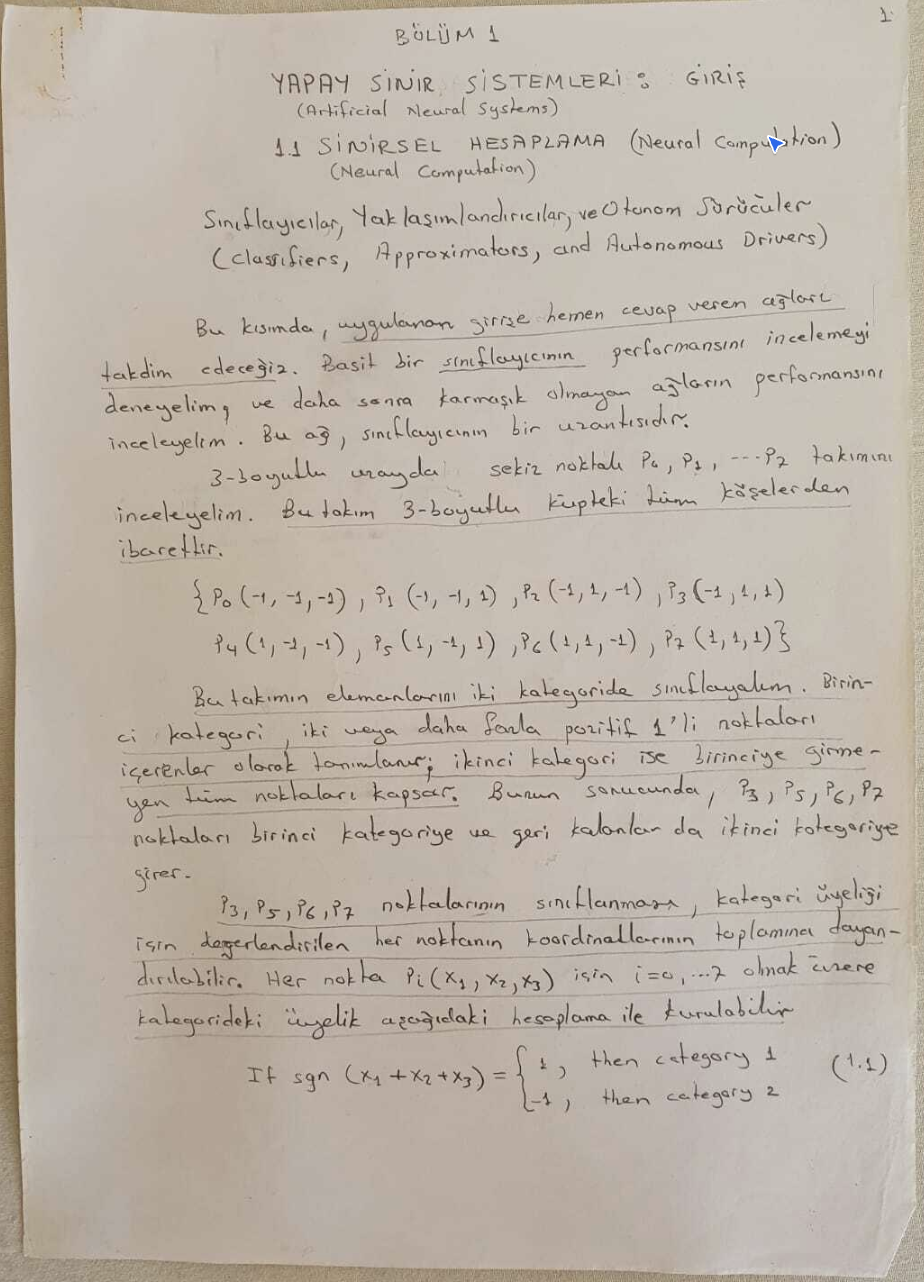 1
BÖLÜM 1
YAPAY SİNİR SİSTEMLERİ : GİRİŞ
(Artificial Neural Systems)
1.1 SİNİRSEL HESAPLAMA (Neural Computation)
(Neural Computation)
Sınıflayıcılar, Yaklaşımlandırıcılar, ve Otonom Sürücüler
(Classifiers, Approximators, and Autonomous Drivers)
Bu kısımda, uygulanan girişe hemen cevap veren ağları
takdim edeceğiz. Basit bir sınıflayıcının performansını incelemeyi
deneyelim, ve daha sonra karmaşık olmayan ağların performansını
inceleyelim. Bu ağ, sınıflayıcının bir uzantısıdır.
3-boyutlu uzayda sekiz noktalı P₀, P₁, ...P₇ takımını
inceleyelim. Bu takım 3-boyutlu küpteki tüm köşelerden
ibarettir.
{P₀(-1, -1, -1), P₁ (-1, -1, 1), P₂ (-1, 1, -1), P₃ (-1, 1, 1)
P₄ (1, -1, -1), P₅ (1, -1, 1), P₆ (1, 1, -1), P₇ (1, 1, 1)}
Bu takımın elemanlarını iki kategoride sınıflayalım. Birin-
ci kategori, iki veya daha fazla pozitif 1'li noktaları
içerenler olarak tanımlanır; ikinci kategori ise birinciye girme-
yen tüm noktaları kapsar. Bunun sonucunda, P₃, P₅, P₆, P₇
noktaları birinci kategoriye ve geri kalanlar da ikinci kategoriye
girer.
P₃, P₅, P₆, P₇ noktalarının sınıflanması, kategori üyeliği
için değerlendirilen her noktanın koordinatlarının toplamına dayan-
dırılabilir. Her nokta Pi (x₁, x₂, x₃) için i=0, ...7 olmak üzere
kategorideki üyelik aşağıdaki hesaplama ile kurulabilir
If sgn (x₁ + x₂ + x₃) = { 1, then category 1 (1.1)
-1, then category 2